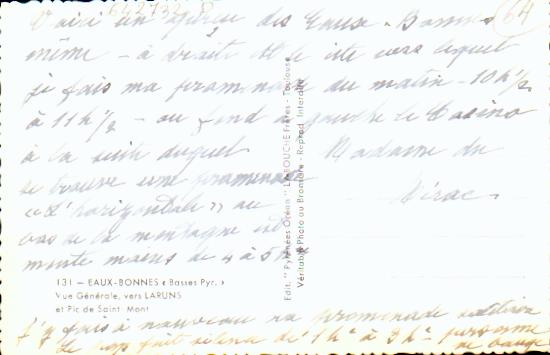 64
Voici un aperçu des Eaux-Bonnes
même - à droite est le site vers lequel
je fais ma promenade du matin - 10h1/2
à 11h1/2 - au fond à gauche le Casino
à la suite duquel
se trouve une promenade
« l'horizontale » au
bas de la montagne
moins de 4 à 5
Madame du
131 — EAUX-BONNES « Basses Pyr. »
Vue Générale, vers LARUNS
et Pic de Saint Mont
Edit. "Pyrénées Océan" LABOUCHE Frères - Toulouse
Véritable Photo au Bromure - Reprod. Interdite
J'y fais à nouveau ma promenade
de 1h à 3h personne